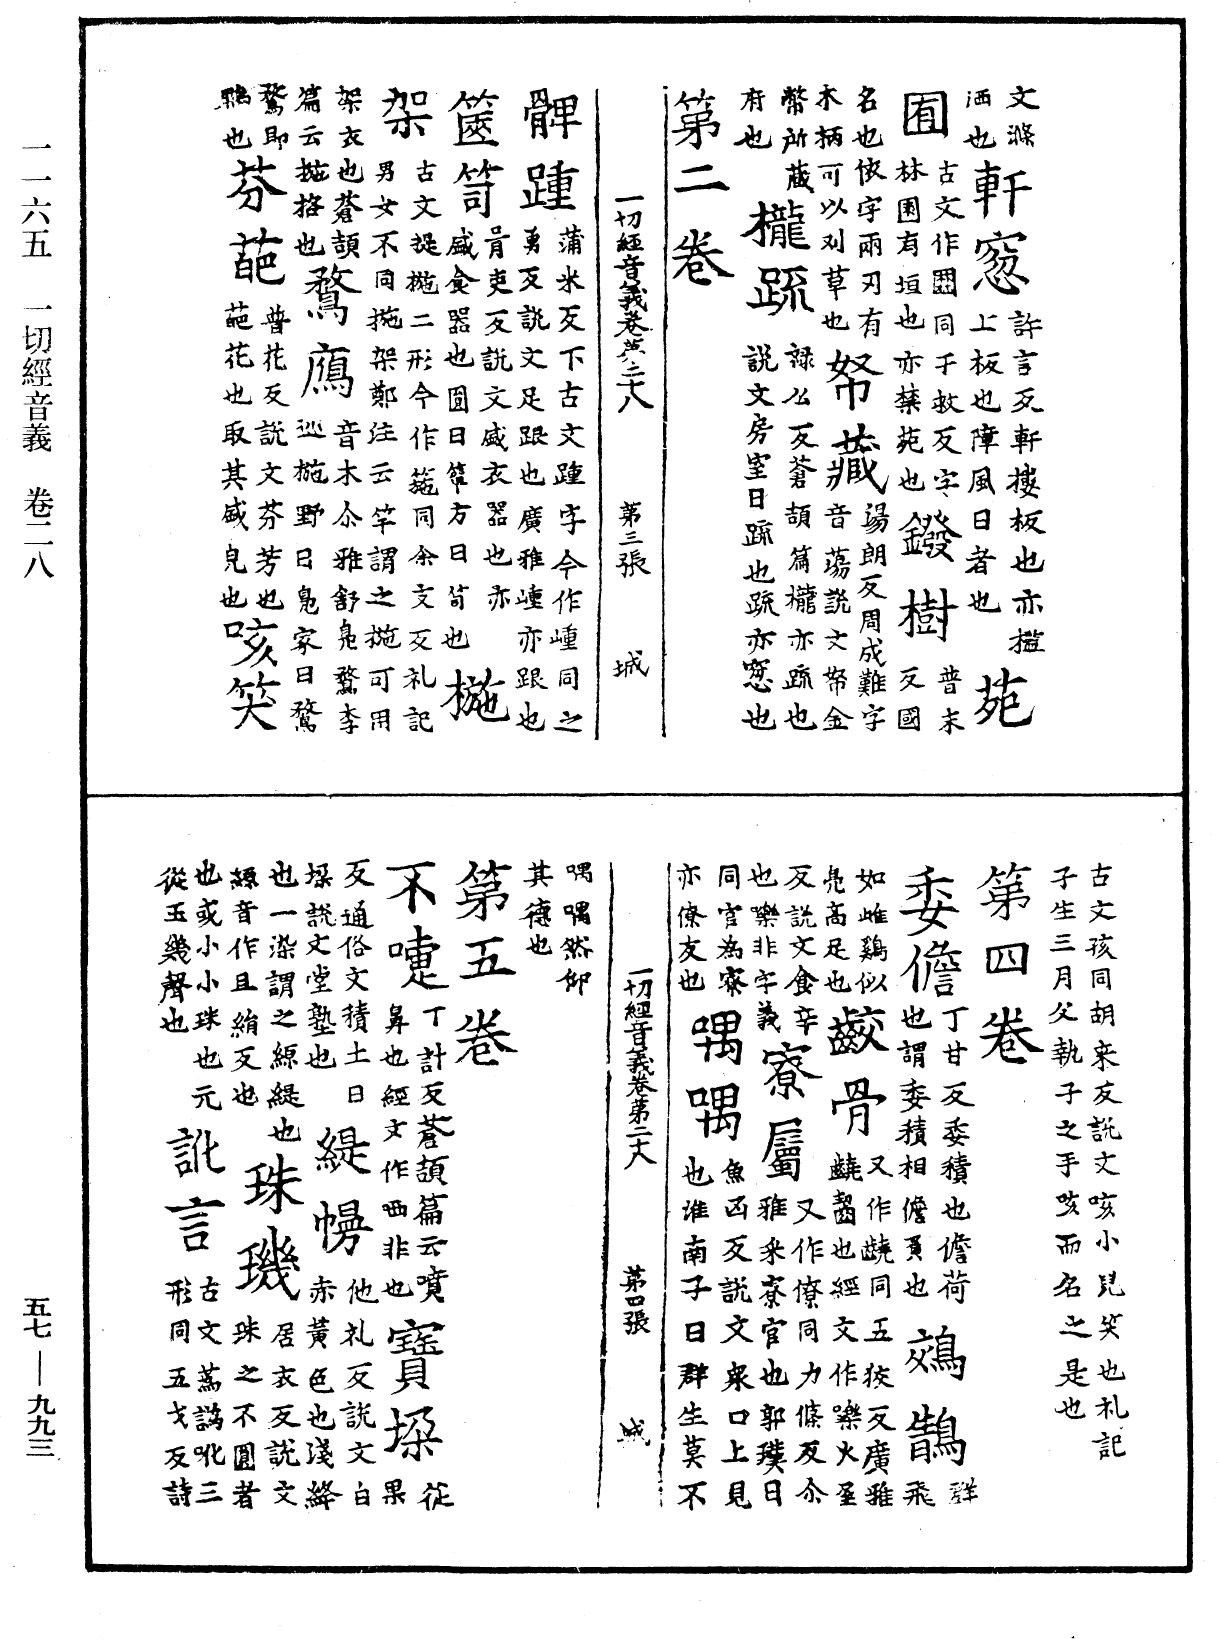 一一六五　一切經音義　卷二八
文滌
洒也
軒窓
許言反軒樓板也亦檻
上板也障風日者也
苑
囿
古文作𡈅同于救反字
林園有垣也亦禁苑也
鏺樹
普末
反國
名也依字兩刃有
木柄可以刈草也
帑藏
湯朗反周成難字
音蕩說文帑金
幣所藏
府也
櫳疏
祿公反蒼頡篇櫳亦疏也
說文房室曰疏也疏亦窓也
第二卷
一切經音義卷第二十八　第三張　城
髀踵
蒲米反下古文踵字今作㣫同之
勇反說文足跟也廣雅㣫亦跟也
篋笥
胥吏反說文盛衣器也亦
盛食器也圓曰簞方曰笥也
椸
架
古文㮛椸二形今作箷同余支反礼記
男女不同椸架鄭注云竿謂之椸可用
架衣也蒼頡
篇云椸格也
鶩鴈
音木尒雅舒鳧鶩李
巡椸野曰鳧家曰鶩
鶩即
鴨也
芬葩
普花反說文芬芳也
葩花也取其盛皃也
咳笑
古文孩同胡来反說文咳小兒笑也礼記
子生三月父執子之手咳而名之是也
第四卷
委儋
丁甘反委積也儋荷
也謂委積相儋負也
鵁鶄
群飛
如雌鷄似
鳧高足也
齩骨
又作䶧同五狡反廣雅
䶧齧也經文作嚛火沃
反說文食辛
也嚛非字義
寮属
又作僚同力條反尒
雅寀寮官也郭璞曰
同官為寮
亦僚友也
喁喁
魚凶反說文衆口上見
也淮南子曰群生莫不
一切經音義卷第二十八　第四張　城
喁喁然仰
其德也
第五卷
不嚏
丁計反蒼頡篇云噴
鼻也經文作哂非也
寶垜
徒果
反通俗文積土曰
垜說文堂塾也
緹幔
他礼反說文白
赤黃色也淺絳
也一染謂之縓緹也
縓音作且絹反也
珠璣
居衣反說文
珠之不圓者
也或小小珠也元
從玉幾聲也
訛言
古文蔿譌吪三
形同五戈反詩
五七——九九三